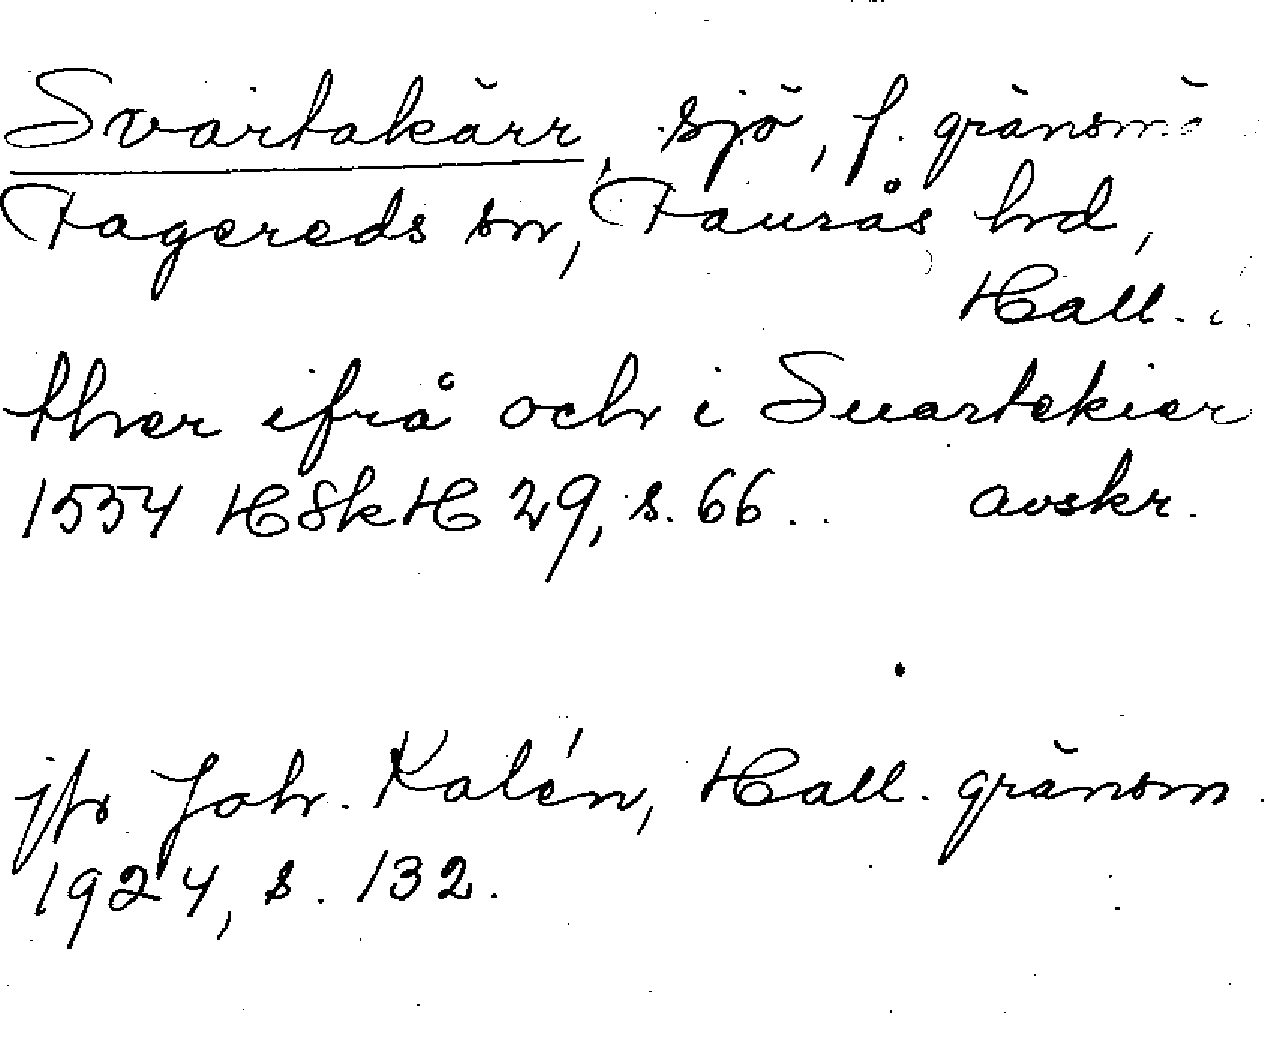 Svartakärr, sjö, f. gränsmä
Fagereds sn, Faurås hd,
Hall.
ther ifrå och i Suartekier
1554 HSkH 29, s. 66. avskr.
jfr Joh. Kalén, Hall. gränsm.
1924, s. 132.